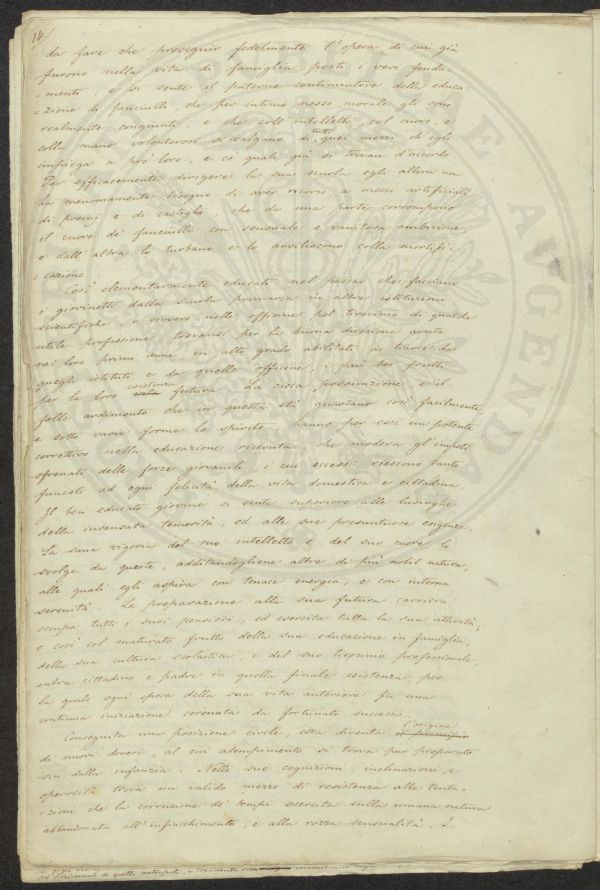 14/
da fare che proseguir fedelmente l'opera, di cui già
furono nella vita di famiglia posti i veri fonda-
=menti; e si sente il paterno continuatore della educa-
=zione di fanciulli che per intimo nesso morale gli sono
realmente congiunti, e che coll'intelletto, col cuore, e
colla mano volonterosi si valgono di tutti quei mezzi ch'egli
impiega a pro' loro, e co' quali già si trovan d'accordo.
Per efficacemente dirigere la sua scuola egli allora non
ha menomamente bisogno di aver ricorso a mezzi artificiali
di premj e di castighi, che da una parte corrompono
il cuore de' fanciulli con sensuale e vanitosa ambizione
e dall'altra lo turbano e lo avviliscono colla mortifi-
=cazione.
Così elementarmente educati nel passo che facciano
i giovinetti dalla scuola primaria in altre istituzioni
scientifiche, o ovvero nelle officine pel tirocinio di qualche
utile professione trovansi per la buona direzione avuta
nei loro primi anni in alto grado abilitati a trarre da
quegli istituti e da quelle officine i più bei frutti
per la loro vita esistenza futura. La cieca presunzione e il
folle ardimento che in questa età guastano così facilmente,
e sotto varie forme lo spirito hanno per essi un potente
correttivo nella educazione ricevuta, che modera gl'impeti
sfrenati delle forze giovanili, i cui eccessi riescono tanto
funesti ad ogni felicità della vita domestica e cittadina.
Il ben educato giovine si sente superiore alle lusinghe
della insensata temerità, ed alle sue presuntuose esigenze.
La sana vigoria del suo intelletto e del suo cuore lo
svolge da queste, additandogliene altre di più nobil natura,
alle quali egli aspira con tenace energia, e con interna
serenità. La preparazione alla sua futura carriera
occupa tutti i suoi pensieri, ed esercita tutta la sua attività;
e così col maturato frutto della sua educazione in famiglia,
della sua cultura scolastica, e del suo tirocinio professionale,
entra cittadino e padre in quella finale esistenza, per
la quale ogni epoca della sua vita anteriore fu una
continua iniziazione coronata da fortunato successo.
Conseguita una posizione civile, essa diventa il principio l'origine
di nuovi doveri, al cui adempimento si trova pur preparato
sin dalla infanzia. Nelle sue cognizioni, inclinazioni, e
operosità trova un valido mezzo di resistenza alle tenta-
=zioni che la corruzione de' tempi esercita sulla umana natura
abbandonata all'infiacchimento, e alla rozza sensualità. I